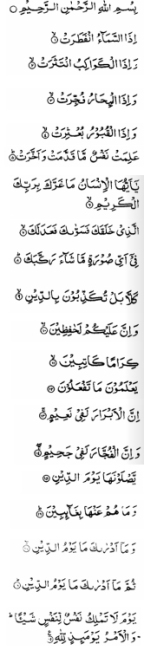 بِسْمِ اللّٰهِ الرَّحْمٰنِ الرَّحِيْمِ ○
اِذَا السَّمَآءُ انْفَطَرَتْ ۙ
وَاِذَا الْكَوَاكِبُ انْتَثَرَتْ ۙ
وَاِذَا الْبِحَارُ فُجِّرَتْ ۙ
وَاِذَا الْقُبُوْرُ بُعْثِرَتْ ۙ
عَلِمَتْ نَفْسٌ مَّا قَدَّمَتْ وَاَخَّرَتْ ؕ
يٰۤاَيُّهَا الْاِنْسَانُ مَا غَرَّكَ بِرَبِّكَ
الْكَرِيْمِ ۙ
الَّذِيْ خَلَقَكَ فَسَوّٰىكَ فَعَدَلَكَ ۙ
فِيْۤ اَيِّ صُوْرَةٍ مَّا شَآءَ رَكَّبَكَ ؕ
كَلَّا بَلْ تُكَذِّبُوْنَ بِالدِّيْنِ ۙ
وَاِنَّ عَلَيْكُمْ لَحٰفِظِيْنَ ۙ
كِرَامًا كَاتِبِيْنَ ۙ
يَعْلَمُوْنَ مَا تَفْعَلُوْنَ
اِنَّ الْاَبْرَارَ لَفِيْ نَعِيْمٍ ۙ
وَاِنَّ الْفُجَّارَ لَفِيْ جَحِيْمٍ ۙ
يَّصْلَوْنَهَا يَوْمَ الدِّيْنِ
وَمَا هُمْ عَنْهَا بِغَآئِبِيْنَ ؕ
وَمَاۤ اَدْرٰىكَ مَا يَوْمُ الدِّيْنِ ۙ
ثُمَّ مَاۤ اَدْرٰىكَ مَا يَوْمُ الدِّيْنِ ؕ
يَوْمَ لَا تَمْلِكُ نَفْسٌ لِّنَفْسٍ شَيْئًا ؕ
وَالْاَمْرُ يَوْمَئِذٍ لِّلّٰهِ